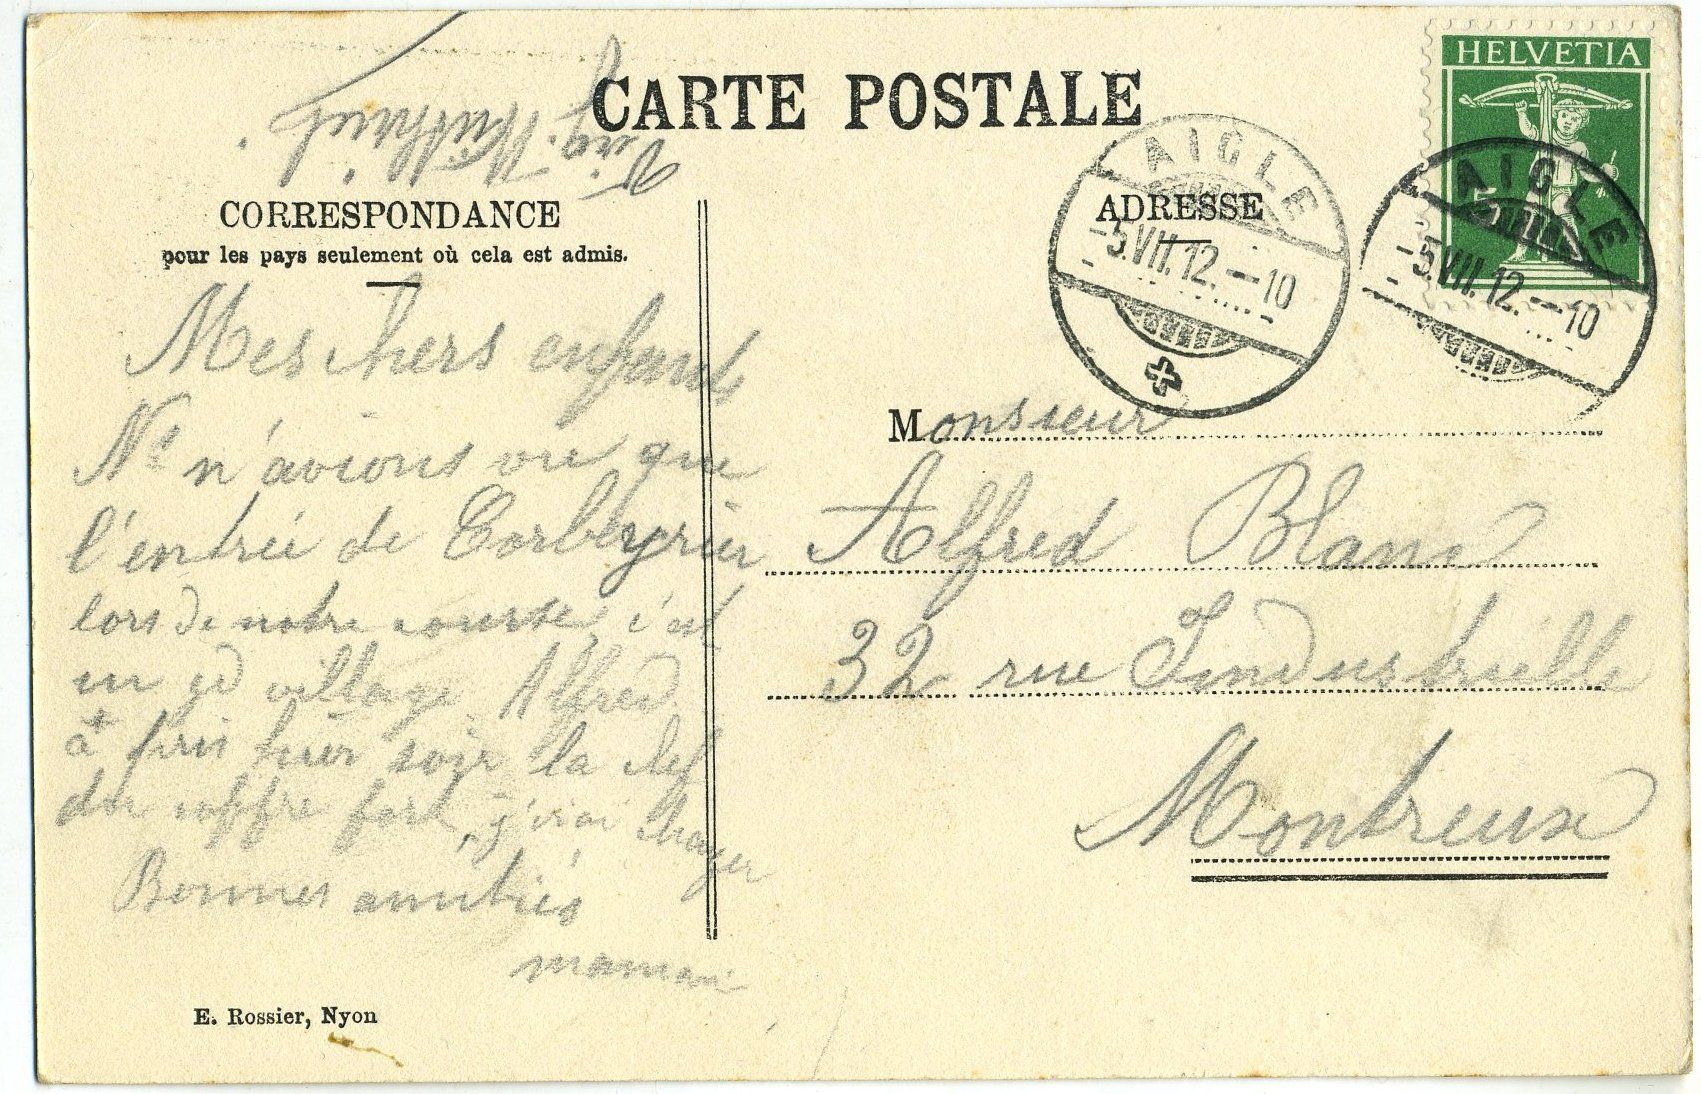 CARTE POSTALE
HELVETIA
5
AIGLE
-5.VII.12.-10
AIGLE
-5.VII.12.-10
CORRESPONDANCE
pour les pays seulement où cela est admis.
ADRESSE
Mes chers enfants
Ns n'avions vu que
l'entrée de Corbeyrier
lors de notre course, c'est
un gd village Alfred
a+ pris hier soir la clef
du coffre fort, j'irai
Bonnes amitiés
maman
Monsieur
Alfred Blanc
32 rue Industrielle
Montreux
E. Rossier, Nyon